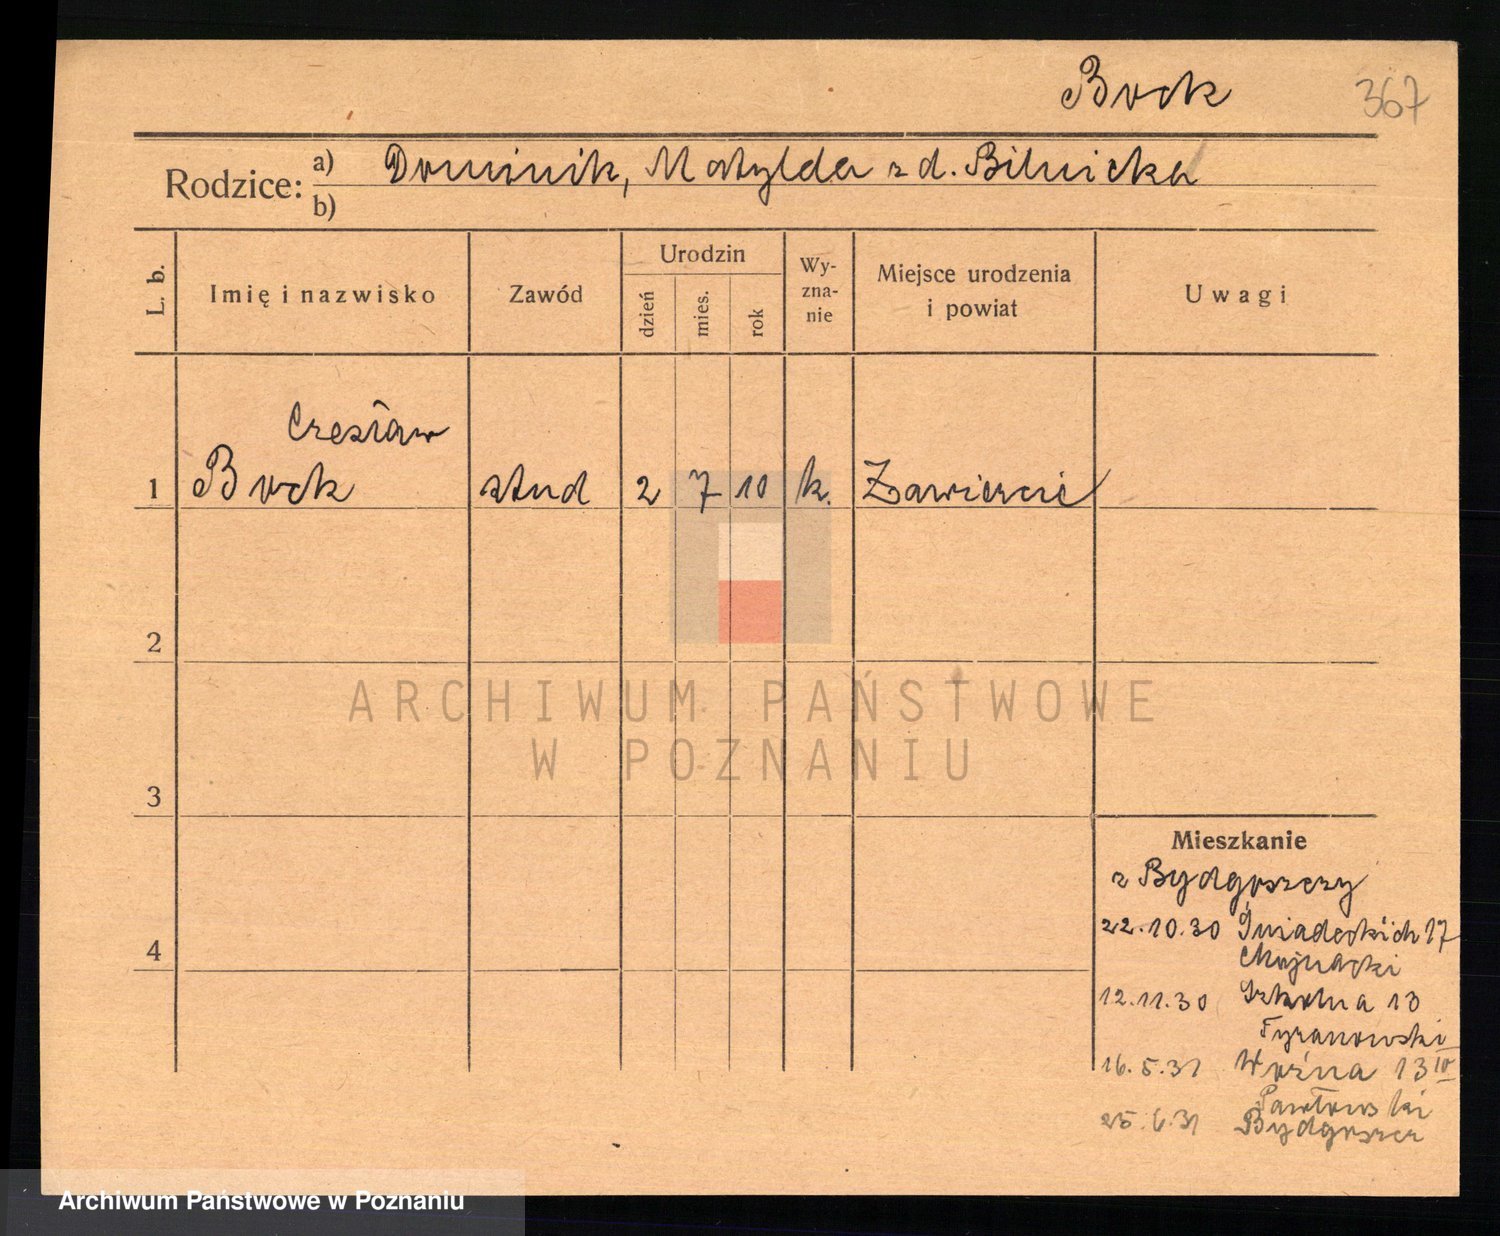 Bock 367
Rodzice: a) Dominik, Matylda z d. Bilnicka
b)
L. b. Imię i nazwisko Zawód Urodzin dzień mies. rok Wy-zna-nie Miejsce urodzenia i powiat Uwagi
Czesław
1 Bock stud 2 7 10 k. Zawiercie
2
3
4
Mieszkanie
z Bydgoszczy
22.10.30 Śniadeckich 17
Chojnacki
12.11.30 Szkolna 13
Tyranowski
16.5.31 Woźna 13 IV
Pawłowski
25.6.31 Bydgoszcz
ARCHIWUM PAŃSTWOWE
W POZNANIU
Archiwum Państwowe w Poznaniu